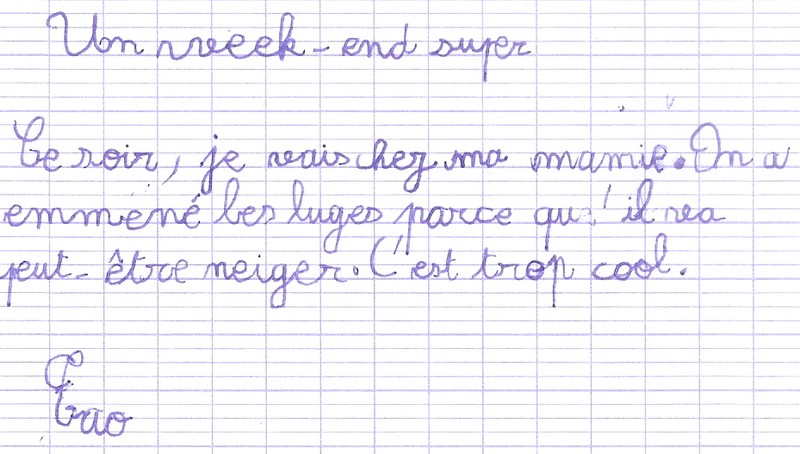 Un week-end super
Ce soir, je vais chez ma mamie. On a
emmené les luges parce qu'il va
peut-être neiger. C'est trop cool.
Tao